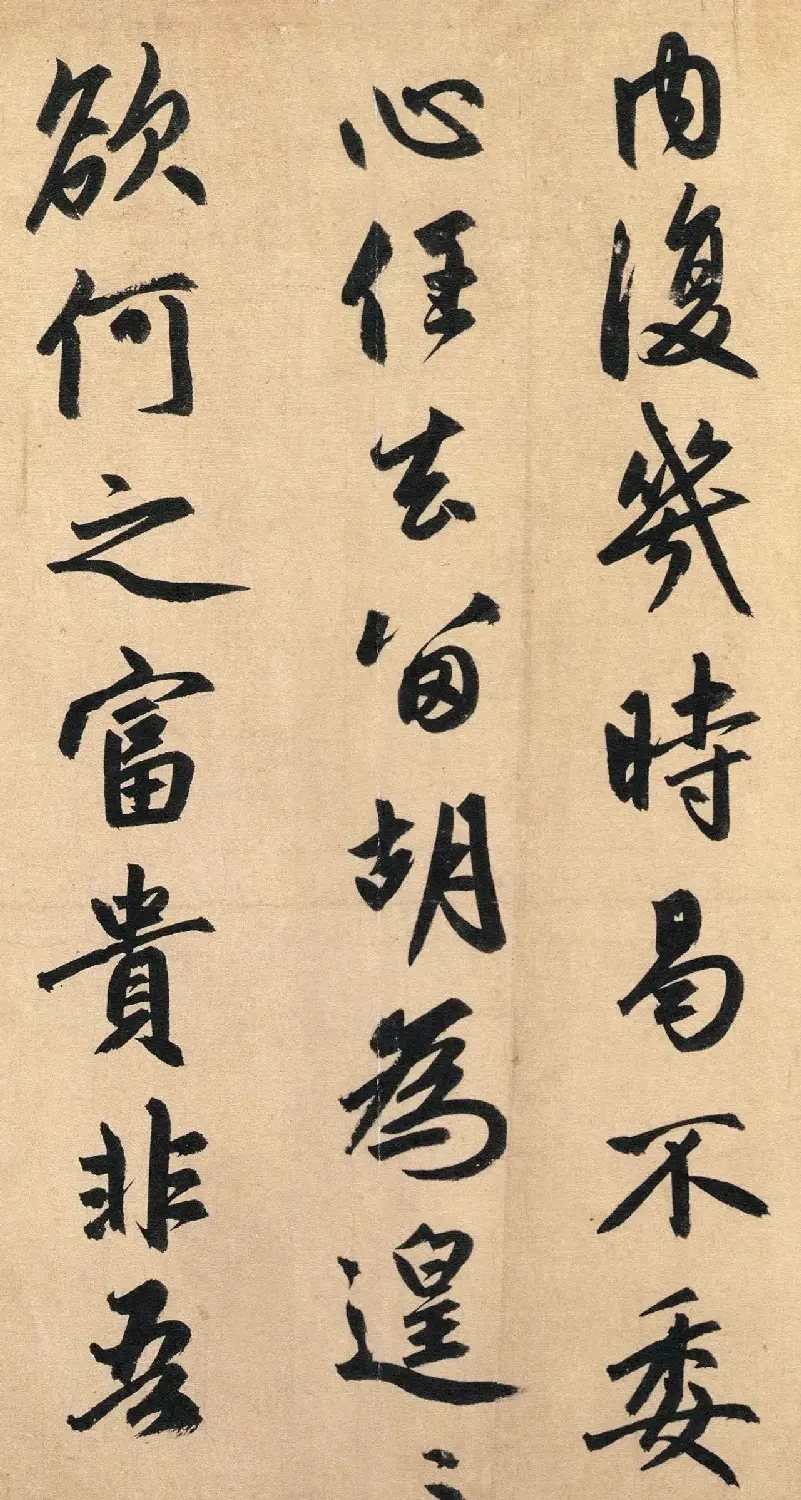 内復幾時曷不委
心任去留胡為遑〻
欲何之富貴非吾